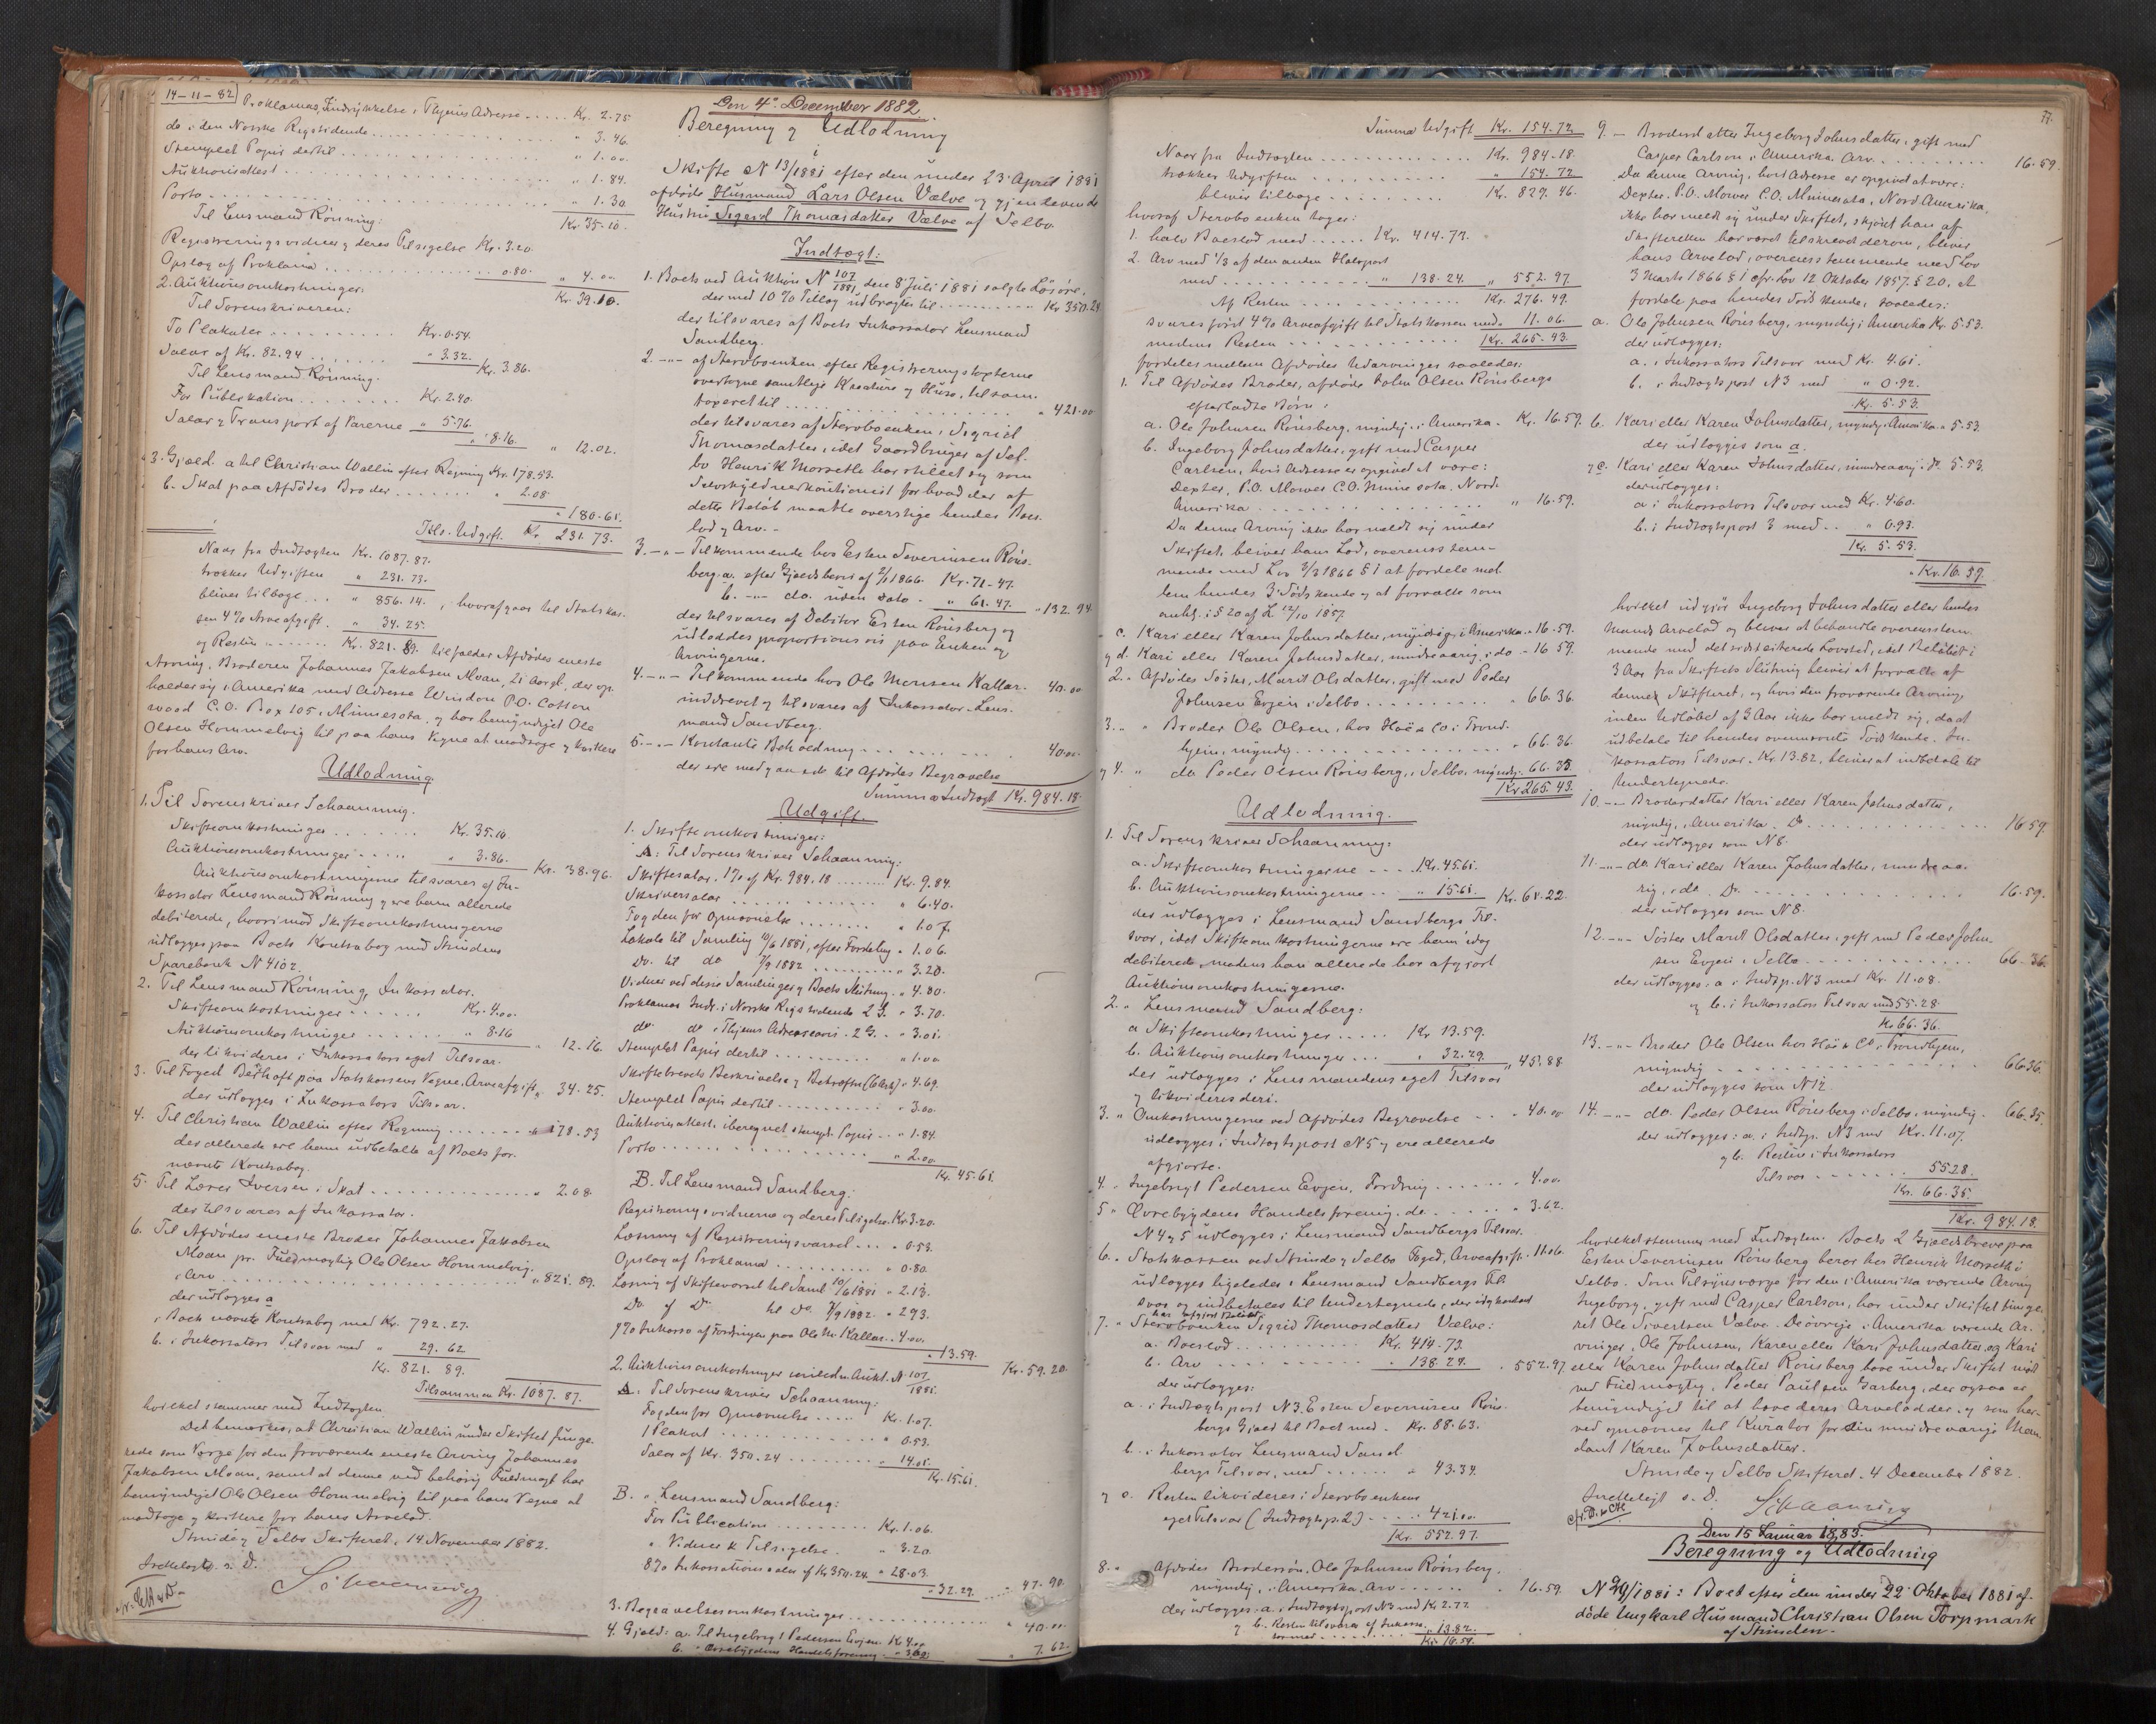 14-11-82
Proklamas Indrykkelse i Thjems Adresse ..... Kr. 2.75
do i den Norske Rigstidende ..... " 3.46.
Stemplet Papir dertil ..... " 1.00.
Auktionsattest ..... " 1.84.
Porto ..... " 1.30
Kr. 35.10.
Til Lensmand Rönning:
Registreringsvidner og deres Tilsigelse Kr. 3.20.
Opslag af Proklama ..... 0.80. " 4.00
Kr. 39.10.
2. Auktionsomkostninger:
Til Sorenskriveren:
To Plakater ..... Kr. 0.54.
Salær af Kr. 82.94 ..... " 3.32. Kr. 3.86.
Til Lensmand Rönning.
For Publikation ..... Kr. 2.40.
Salær & Transport af Varerne " 5.76.
" 8.16. " 12.02.
3. Gjæld. a til Christian Wallin efter Regning Kr. 178.53.
b. Skat paa Afdödes Broder ..... " 2.08
" 180.61.
Tils. Udgift Kr. 231.73.
Naar fra Indtægten Kr. 1087.87.
trækkes Udgiften " 231.73.
bliver tilbage ... " 856.14. , hvoraf gaar til Statskas-
sen 4% Arveafgift. " 34.25.
og Resten ..... Kr. 821.89. tilfalder Afdödes eneste
Arving, Broderen Johannes Jakobsen Moan, 21 Aar gl., der op-
holder sig i Amerika med Adresse Windom P.O. Cotton
wood C.O. Box 105, Minnesota, og har bemyndiget Ole
Olsen Hommelvig til paa hans Vegne at modtage og kvittere
for hans Arv.
Udlodning
1. Til Sorenskriver Schaanning.
Skifteomkostninger ..... Kr. 35.10
Auktionsomkostninger ..... " 3.86.
Kr. 38.96.
Auktionsomkostningerne tilsvares af In-
kassator Lensmand Rönning og ere ham allerede
debiterede, hvorimod Skifteomkostningerne
udlægges paa Boets Kontrabog med Strindens
Sparebank N 4102.
2. Til Lensmand Rönning, Inkassator.
Skifteomkostninger ..... Kr. 4.00
Auktionsomkostninger ..... " 8.16
" 12.16.
der likvideres i Inkassators eget Tilsvar.
3. Til Foged Bernhoft paa Statskassens Vegne, Arveafgift " 34.25.
der udlægges i Inkassators Tilsvar.
4. Til Christian Wallin efter Regning ..... " 178.53
der allerede ere ham udbetalte af Boets for-
nævnte Kontrabog.
5. Til Lærer Iversen i Skat ..... " 2.08.
der tilsvares af Inkassator.
6. Til Afdödes eneste Broder Johannes Jakobsen
Moan pr. Fuldmægtig Ole Olsen Hommelvig.
i Arv ..... " 821.89.
der udlægges a
i Boets nævnte Kontrabog med Kr. 792.27.
b. i Inkassators Tilsvar med " 29.62
Kr. 821.89.
Tilsammen Kr. 1087.87.
hvilket stemmer med Indtægten.
Det bemærkes, at Christian Wallin under Skiftet funge-
rede som Værge for den fraværende eneste Arving Johannes
Jakobsen Moan, samt at denne ved behörig Fuldmagt har
bemyndiget Ole Olsen Hommelvig til paa hans Vegne at
modtage og kvittere for hans Arvelod.
Strinde og Selbo Skifteret, 14 November 1882.
Indkelegt. s. D.
Schaanning
Den 4de December 1882.
Beregning og Udlodning
i
Skifte N 13/1881 efter den under 23 April 1881
afdöde Husmand Lars Olsen Vælve og gjenlevende
Hustru Sigrid Thomasdatter Vælve af Selbo
Indtægt:
1. Boets ved Auktion N 107/1881, den 8 Juli 1881 solgte Lösöre,
der med 10 % Tillæg udbragtes til ..... Kr 350.24
der tilsvares af Boets Inkassator Lensmand
Sandberg.
2. -"- af Stervboenken efter Registreringstaxterne
overtagne samtlige Kreature og Huse, tilsam.
taxeret til ..... " 421.00
der tilsvares af Stervboenken, Sigrid
Thomasdatter, idet Gaardbruger af Sel-
bo Henrik Morseth har stillet sig som
Selvskyldnerkautionist for hvad der af
dette Belöb maatte overstige hendes Boes-
lod og Arv. -
3. -"- Tilkommende hos Esten Severinsen Röns-
berg. a. efter Gjældsbevis af 2/1 1866. Kr. 71.47.
b. -"- do. uden Dato - " 61.47. " 132.94.
der tilsvares af Debitor Esten Rönsberg og
udloddes proportionsvis paa Enken og
Arvingerne.
4. -"- Tilkommende hos Ole Monsen Kallar. 40.00
inddrevet og tilsvares af Inkassator Lens-
mand Sandberg.
5. -"- Kontante Beholdning ..... 40.00.
der ere medgaaede til Afdödes Begravelse
Summa Indtægt Kr. 984.18.
Udgift.
1. Skifteomkostninger:
A: Til Sorenskriver Schaanning:
Skiftesalær. 1% af Kr. 984.18 ..... Kr. 9.84.
Skriversalær ..... " 6.40.
Fogden for Opnævnelse ..... " 1.07.
Lokale til Samling 10/6 1881, efter Fordeling " 1.06.
Do. til do 7/9 1882 ..... " 3.20.
Vidner ved disse Samlinger og Boets Slutning. " 4.80.
Proklamas Indr. i Norske Rigstidende 2 G. " 3.70.
do. do i Thjems Adressavis. 2 G. " 3.01.
Stemplet Papir dertil ..... " 1.00
Skiftebrevets Beskrivelse og Bekræftn. (6 Ark) " 4.69.
Stemplet Papir dertil ..... " 3.00.
Auktionsattest iberegnet stempl. Papir .. " 1.84.
Porto ..... " 2.00.
Kr. 45.61.
B. Til Lensmand Sandberg:
Registreringsvidnerne og deres Tilsigelse Kr 3.20.
Læsning af Registreringsvarsel ... " 0.53.
Opslag af Proklama ..... " 0.80.
Læsning af Skiftevarsel til Saml 10/6 1881 " 2.13.
Do. af Do. til Do. 7/9 1882. " 2.93.
% Inkasso af Fordringen paa Ole M. Kallar.. 4.00.
" 13.59.
Kr. 59.20.
2. Auktionsomkostninger Aukt. N 107/1881.
A: Til Sorenskriver Schaanning:
Fogden for Opnævnelse ..... Kr. 1.07.
1 Plakat ..... " 0.53.
Salær af Kr. 350.24 ..... " 14.01.
Kr. 15.61.
B. " Lensmand Sandberg:
For Publication ..... Kr. 1.06.
" Vidner & Tilsigelse. " 3.20.
8% Inkassationssalær af Kr 350.24. " 28.03.
" 32.29. " 47.90.
3. Begravelsesomkostninger ..... " 40.00.
4. Gjæld: a. Til Ingebrigt Pedersen Evjen. Kr 4.00
b. " Övrebygdens Handelsforening " 3.62
" 7.62.
77.
Summa Udgift Kr. 154.72
Naar fra Indtægten ..... Kr. 984.18.
trækkes Udgiften ..... " 154.72
bliver tilbage ..... Kr. 829.46.
hvoraf Stervboenken tager:
1. halv Boeslod med ..... Kr. 414.73.
2. Arv med 1/3 af den anden Halvpart
med ..... " 138.24. " 552.97.
Af Resten ..... Kr. 276.49.
svares först 4% Arveafgift til Statskassen med " 11.06.
medens Resten ..... Kr. 265.43.
fordeles mellem Afdödes Udarvinger saaledes:
1. Til Afdödes Broder, afdöde John Olsen Rönsbergs
efterladte Börn:
a. Ole Johnsen Rönsberg, myndig, i Amerika. Kr. 16.59.
b. Ingeborg Johnsdatter, gift med Casper
Carlsen, hvis Adresse er opgivet at være:
Dexter, P.O. Mower C.O. Minnesota. Nord-
Amerika ..... " 16.59.
Da denne Arving ikke har meldt sig under
Skiftet, bliver hans Lod, overensstem-
mende med Lov 3/3 1866 § 1 at fordele mel-
lem hendes 3 Södskende og at forvalte som
anhlg. i § 20 af L 12/10 1857.
" c. Kari eller Karen Johnsdatter, myndig, i Amerika. " 16.59.
og d. Kari eller Karen Johnsdatter, mindreaarig, i do - 16.59.
2. " Afdödes Söster, Marit Olsdatter, gift med Peder
Johnsen Evjen i Selbo ..... " 66.36.
3. " " Broder Ole Olsen, hos Höe & Co i Trond-
hjem, myndig ..... " 66.36.
og 4. " do Peder Olsen Rönsberg, i Selbo, myndig. 66.35.
Kr 265.43.
Udlodning.
1. Til Sorenskriver Schaanning:
a. Skifteomkostningerne ..... Kr. 45.61.
b. Auktionsomkostningerne ... " 15.61. Kr. 61.22.
der udlægges i Lensmand Sandbergs Til-
svar, idet Skifteomkostningerne ere ham idag
debiterede, medens han allerede har afgjort
Auktionsomkostningerne.
2. " Lensmand Sandberg:
a Skifteomkostninger ..... Kr 13.59.
b. Auktionsomkostninger ... " 32.29. " 45.88.
der udlægges i Lensmandens eget Tilsvar
og likvideres deri.
3. " Omkostningerne ved Afdödes Begravelse .. " 40.00
udlægges i Indtægtspost N 5 og ere allerede
afgjorte.
4. " Ingebrigt Pedersen Evjen, Fordring ..... " 4.00.
5 " Övrebygdens Handelsforening, do ..... " 3.62.
N 4 og 5 udlægges i Lensmand Sandbergs Tilsvar.
6. " Statskassen ved Strinde og Selbo Foged, Arveafgift. 11.06.
udlægges ligeledes i Lensmand Sandbergs Til-
svar og indbetales til Undertegnede, der
har afgjort Belöbet
7. " Stervboenken Sigrid Thomasdatter Vælve:
a. Boeslod ..... Kr. 414.73.
b. Arv ..... " 138.24. " 552.97
der udlægges:
a. i Indtægtspost N 3. Esten Severinsen Röns-
bergs Gjæld til Boet med. Kr. 88.63.
b. i Inkassator Lensmand Sand-
bergs Tilsvar, med ..... " 43.34.
og c. Resten likvideres i Stervboenkens
eget Tilsvar (Indtægtsp. 2) ..... 421.00.
Kr. 552.97.
8. " Afdödes Brodersön, Ole Johnsen Rönsberg,
myndig, i Amerika. Arv ..... " 16.59.
der udlægges: a. i Indtægtspost N 3 med Kr 2.77.
og b. Resten tilsvares af Inkassa-
tor med ..... " 13.82.
Kr. 16.59.
9. - Broderdatter Ingeborg Johnsdatter, gift med
Casper Carlsen i Amerika. Arv ..... 16.59.
Da denne Arving, hvis Adresse er opgivet at være:
Dexter. P.O. Mower C.O. Minnesota, Nord-Amerika,
ikke har meldt sig under Skiftet, skjönt han af
Skifteretten har været tilskrevet derom, bliver
hans Arvelod, overensstemmende med Lov
3 Marts 1866 § 1 cfr. Lov 12 Oktober 1857. § 20, at
fordele paa hendes Södskende, saaledes:
a. Ole Johnsen Rönsberg, myndig i Amerika Kr. 5.53.
der udlægges:
a. i Inkassators Tilsvar med Kr. 4.61.
b. i Indtægtspost N 3 med " 0.92.
Kr. 5.53.
b. Kari eller Karen Johnsdatter, myndig i Amerika. " 5.53.
der udlægges som a.
og c. Kari eller Karen Johnsdatter, mindreaarig i do. 5.53.
der udlægges:
a i Inkassators Tilsvar med Kr. 4.60.
b. i Indtægtspost 3 med .. " 0.93.
Kr. 5.53.
" Kr. 16.59.
hvilket udgjör Ingeborg Johnsdatter eller hendes
Mands Arvelod og bliver at behandle overensstem-
mende med det sidstciterede Lovsted, idet Belöbet i
3 Aar fra Skiftets Slutning bliver at forvalte af
denne Skifteret, og hvis den fraværende Arving
inden Udlöbet af 3 Aar ikke har meldt sig, da at
udbetale til hendes ovennævnte Södskende. In-
kassators Tilsvar. Kr. 13.82, bliver at indbetale til
Undertegnede.
10. -"- Broderdatter Kari eller Karen Johnsdatter,
myndig, i Amerika. Do ..... 16.59.
der udlægges som N 8.
11. -"- do Kari eller Karen Johnsdatter, mindreaa-
rig, i do. Do ..... 16.59.
der udlægges som N 8.
12. -"- Söster Marit Olsdatter, gift med Peder John-
sen Evjen i Selbo ..... 66.36.
der udlægges, a i Indtgp. N 3 med Kr. 11.08.
og b. i Inkassators Tilsvar med 55.28.
Kr 66.36.
13. -"- Broder Ole Olsen hos Höe & Co i Trondhjem,
myndig ..... 66.36.
der udlægges som N 12.
14. -"- do. Peder Olsen Rönsberg i Selbo, myndig. 66.35.
der udlægges: a. i Indtgp. N 3 med Kr. 11.07.
og b. Resten i Inkassators
Tilsvar ..... 55.28.
Kr. 66.35.
Kr. 984.18.
hvilket stemmer med Indtægten. Boets 2 Gjældsbreve paa
Esten Severinsen Rönsberg beror hos Henrik Morseth i
Selbo. Som Tilsynsværge for den i Amerika værende Arving
Ingeborg, gift med Casper Carlsen, har under Skiftet funge-
ret Ole Sivertsen Vælve. De övrige i Amerika værende Ar-
vinger, Ole Johnsen, Karen eller Kari Johnsdatter og Kari
eller Karen Johnsdatter Rönsberg have under Skiftet mödt
ved Fuldmægtig, Peder Paulsen Garberg, der ogsaa er
bemyndiget til at hæve deres Arvelodder, og som her-
ved opnævnes til Kurator for den mindreaarige Man-
dant Karen Johnsdatter.
Strinde og Selbo Skifteret. 4 December 1882.
Indkelegt s. D.
Schaanning
Den 15 Januar 1883.
Beregning og Udlodning
i
N 29/1881: Boet efter den under 22 Oktober 1881 af-
döde Ungkarl Husmand Christian Olsen Torpmark
af Strinden.